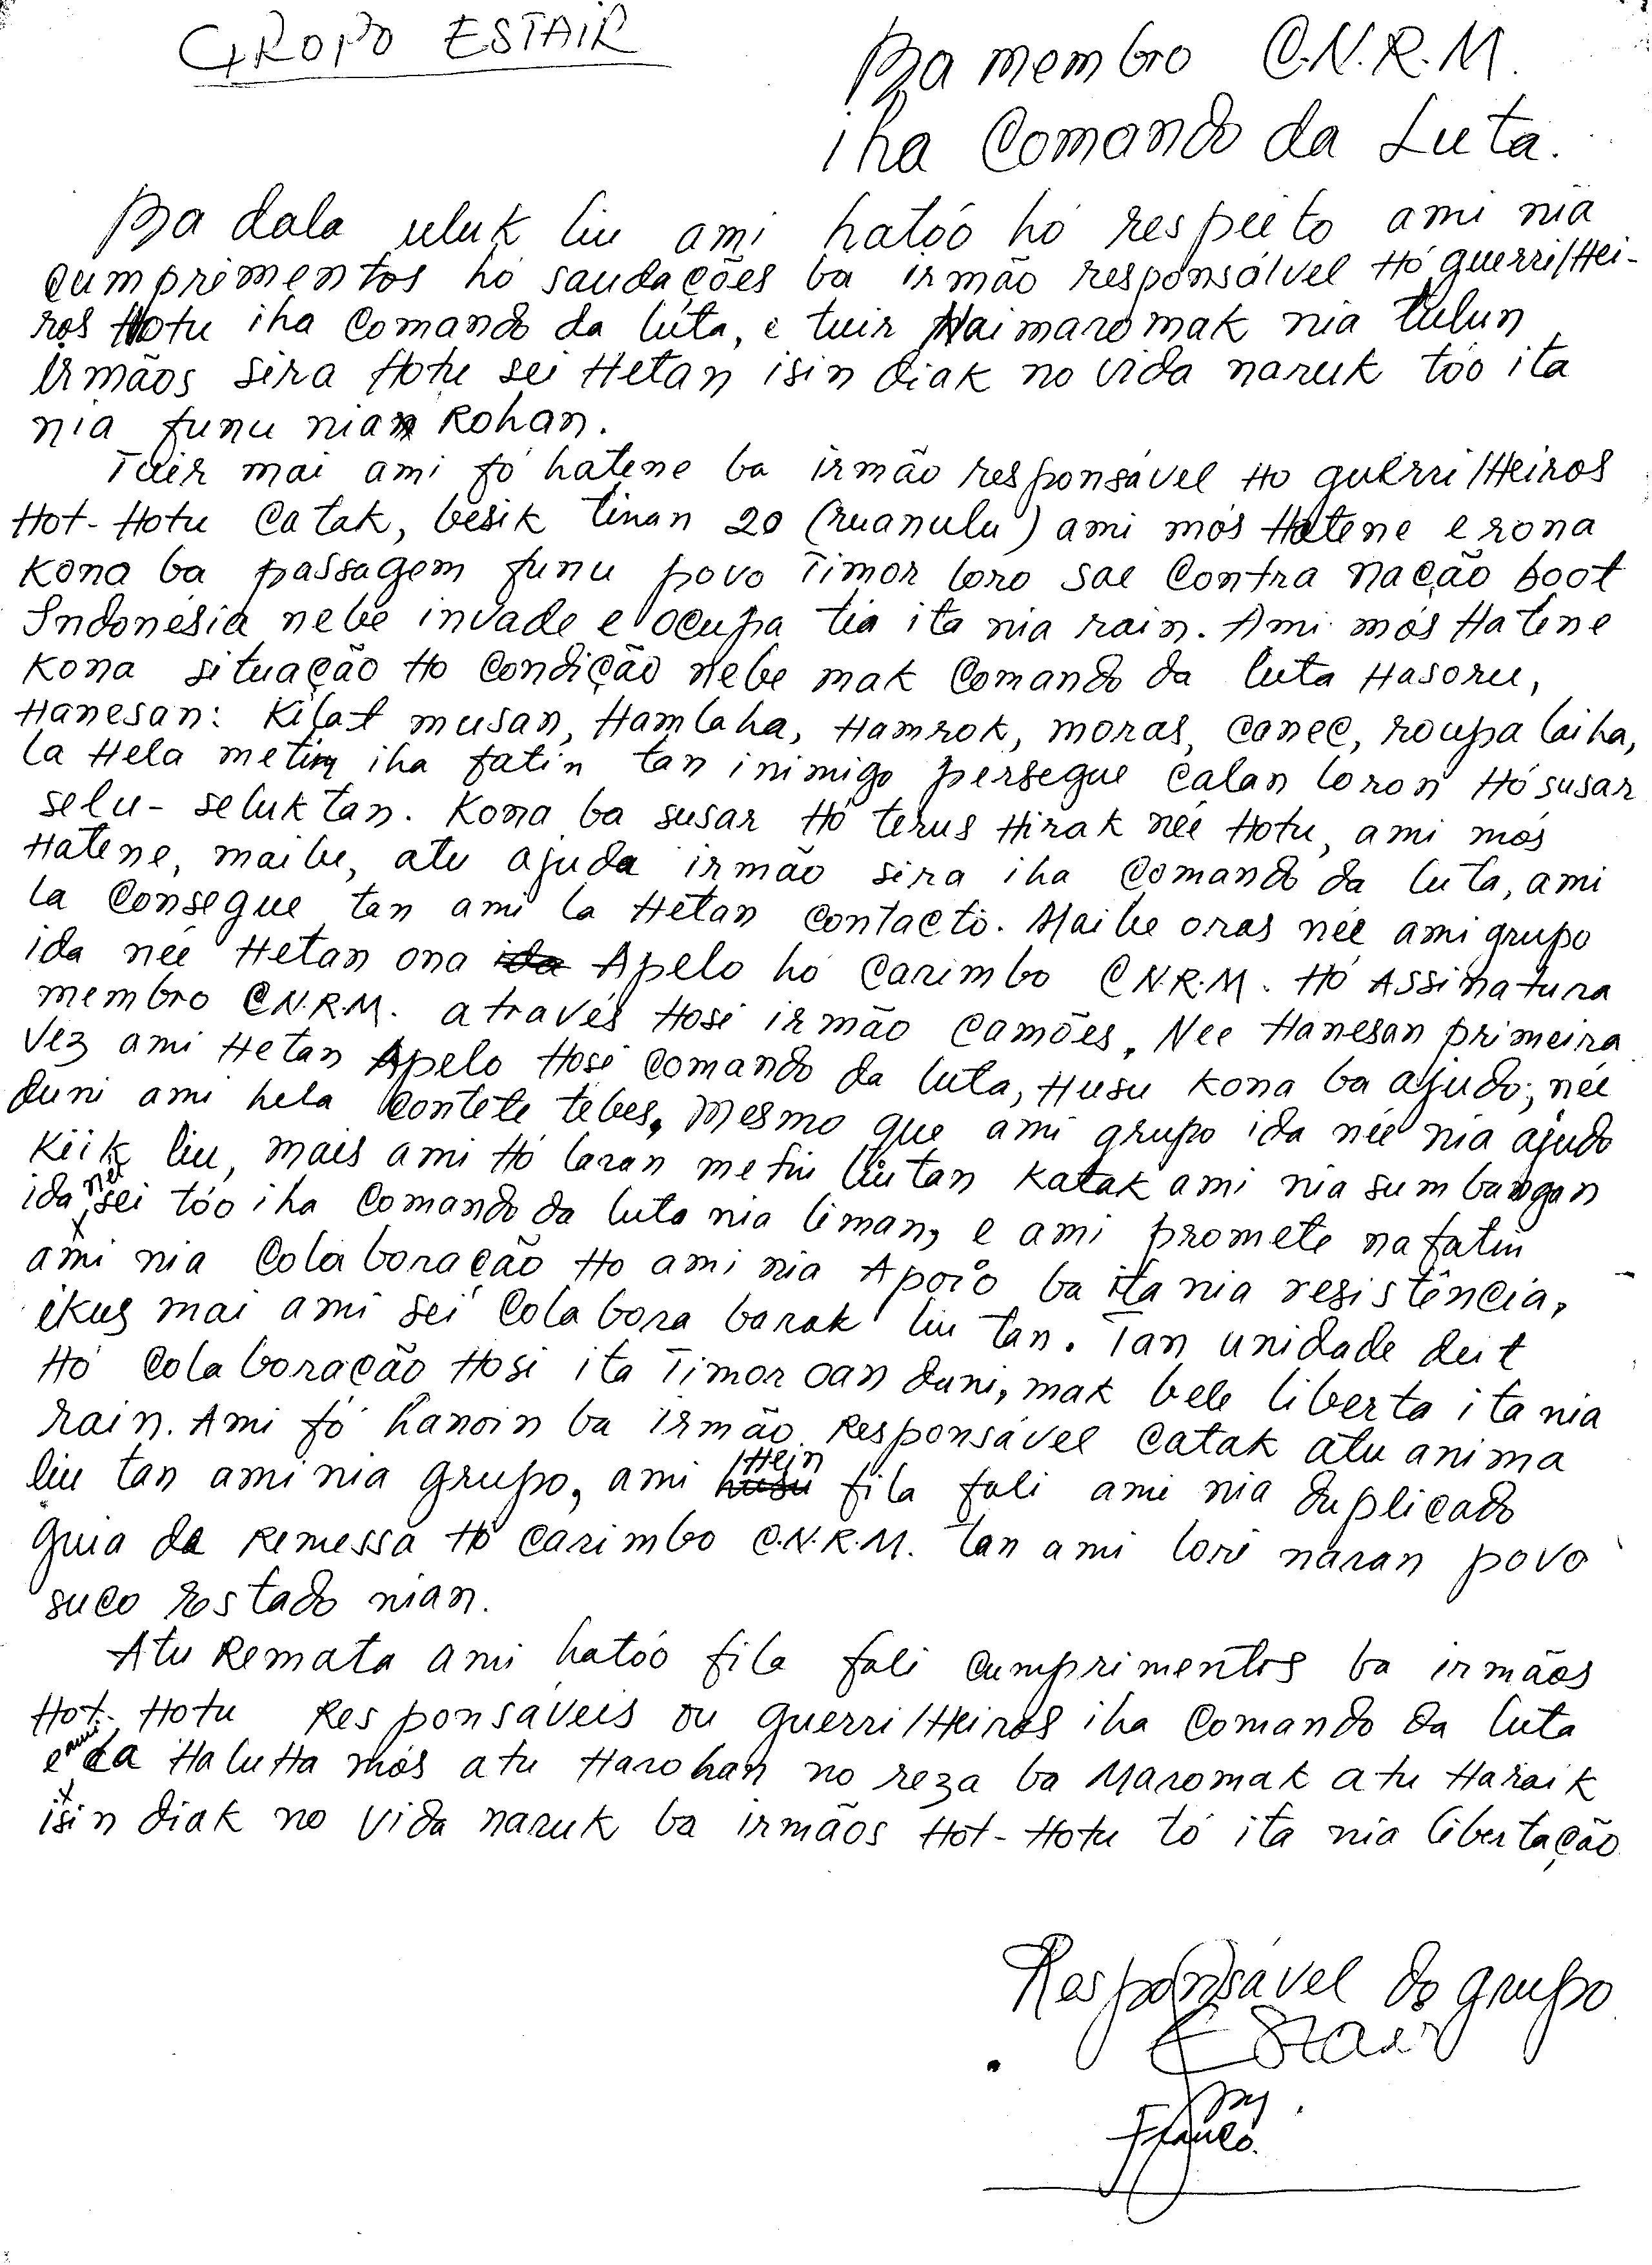 GROPO ESTAIR
Ba membro C.N.R.M.
iha Comando da Luta.
Ba dala uluk liu ami hatóo hó respeito ami nia
cumprimentos hó saudações ba irmão responsálvel Hó guerrilHei-
ros Hotu iha Comando da lúta, e tuir Naimaromak nia tulun
irmãos sira Hotu sei Hetan isin diak no vida naruk tóo ita
nia funu nian Rohan.
Tuir mai ami fó hatene ba irmão responsável Ho guerrilHeiros
Hot-Hotu Catak, besik tinan 20 (ruanulu) ami mós Hatene e rona
Kona ba passagem funu povo Timor loro sae Contra nação boot
Indonésia nebe invade e ocupa tia ita nia rain. Ami mós Hatene
Kona situação Ho Condição nebe mak Comando da luta Hasoru,
Hanesan: Kilat musan, Hamlaha, Hamrok, moras, canec, roupa laiha,
la Hela metin iha fatin tan inimigo persegue calan loron Hó susar
selu-seluk tan. Kona ba susar Hó terus Hirak néé Hotu, ami mós
Hatene, maibe, atu ajuda irmão sira iha Comando da luta, ami
la Consegue tan ami la Hetan contacto. Maibe oras néé ami grupo
ida néé Hetan ona ida Apelo hó Carimbo C.N.R.M. Hó Assinatura
membro C.N.R.M. através Hosi irmão Camões. Nee Hanesan primeira
vez ami Hetan Apelo Hosi Comando da luta, Husu Kona ba ajudo; néé
duni ami hela Contete tebes. Mesmo que ami grupo ida néé nia ajudo
Kiik liu, mais ami Hó laran metin liu tan Katak ami nia sumbangan
ida néé sei tóo iha Comando da luta nia liman, e ami promete nafatin
ami nia Colaboração Ho ami nia Apoio ba ita nia resistência,
ikus mai ami sei Colabora barak liu tan. Tan unidade deit
Hó Colaboração Hosi ita Timor oan duni, mak bele liberta ita nia
rain. Ami fó hanoin ba irmão Responsável Catak atu anima
liu tan ami nia grupo, ami husu Hein fila fali ami nia duplicado
guia da Remessa Hó Carimbo C.N.R.M. tan ami lori naran povo
suco Rostado nian.
Atu Remata ami hatóo fila fali Cumprimentos ba irmãos
Hot-Hotu Responsáveis ou guerrilHeiros iha Comando da luta
e ami la HaluHa mós atu Harohan no reza ba Maromak atu Haraik
isin diak no vida naruk ba irmãos Hot-Hotu tó ita nia libertação
Responsável do grupo
Estair